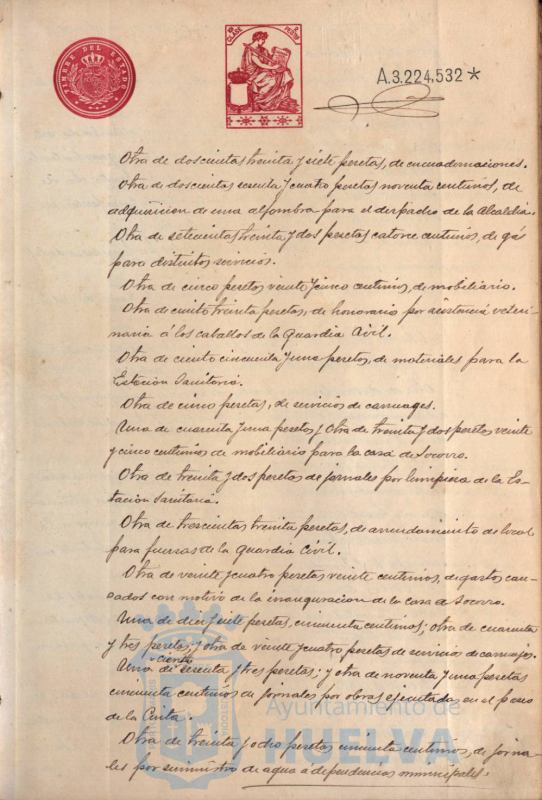 TIMBRE DEL ESTADO
A.3.224.532*
Otra de doscientas treinta y siete pesetas, de encuadernaciones.
Otra de doscientas sesenta y cuatro pesetas noventa centimos, de
adquisicion de una alfombra para el despacho de la Alcaldia.
Otra de setecientas treinta y dos pesetas catorce centimos, de gas
para distintos servicios.
Otra de cinco pesetas veinte y cinco centimos, de mobiliario.
Otra de ciento treinta pesetas, de honorario por asistencia veteri-
naria á los caballos de la Guardia Civil.
Otra de ciento cincuenta y una pesetas, de materiales para la
Estacion Sanitaria.
Otra de cinco pesetas, de servicios de carruages.
Una de cuarenta y una pesetas y otra de treinta y dos pesetas veinte
y cinco centimos de mobiliario para la casa de Socorro.
Otra de treinta y dos pesetas de jornales por limpieza de la Es-
tacion Sanitaria.
Otra de trescientas treinta pesetas, de arrendamiento de local
para fuerzas de la Guardia Civil.
Otra de veinte y cuatro pesetas veinte centimos, de gastos cau-
sados con motivo de la inauguracion de la casa de Socorro.
Una de diez y siete pesetas, cincuenta centimos; otra de cuarenta
y tres pesetas; y otra de veinte y cuatro pesetas de servicio de carruajes.
Una de ciento sesenta y tres pesetas; y otra de noventa y una pesetas
cincuenta centimos de jornales por obras ejecutadas en el paseo
de la Cinta.
Otra de treinta y ocho pesetas cincuenta centimos, de jorna-
les por suministro de agua á dependencias municipales.
Ayuntamiento de
HUELVA